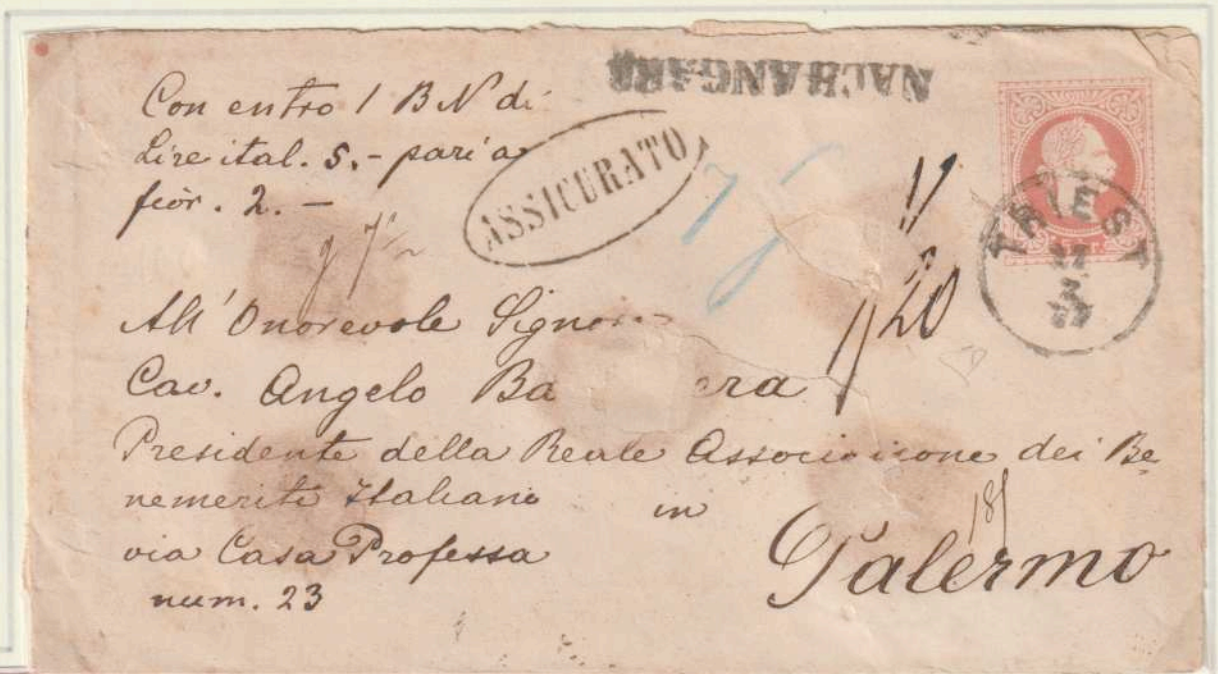 Con entro 1 BN di
Lire ital. 5.- pari a
fior. 2.-
NACH ANGABE
ASSICURATO
TRIEST
All' Onorevole Signor
Cav. Angelo Ba era
Presidente della Reale Associazione dei Be-
nemeriti Italiani in
via Casa Professa
num. 23
Palermo
11
20
18f